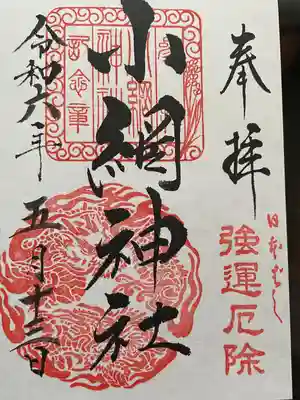 奉拝
日本ばし
強運厄除
小網神社
令和六年
五月十三日